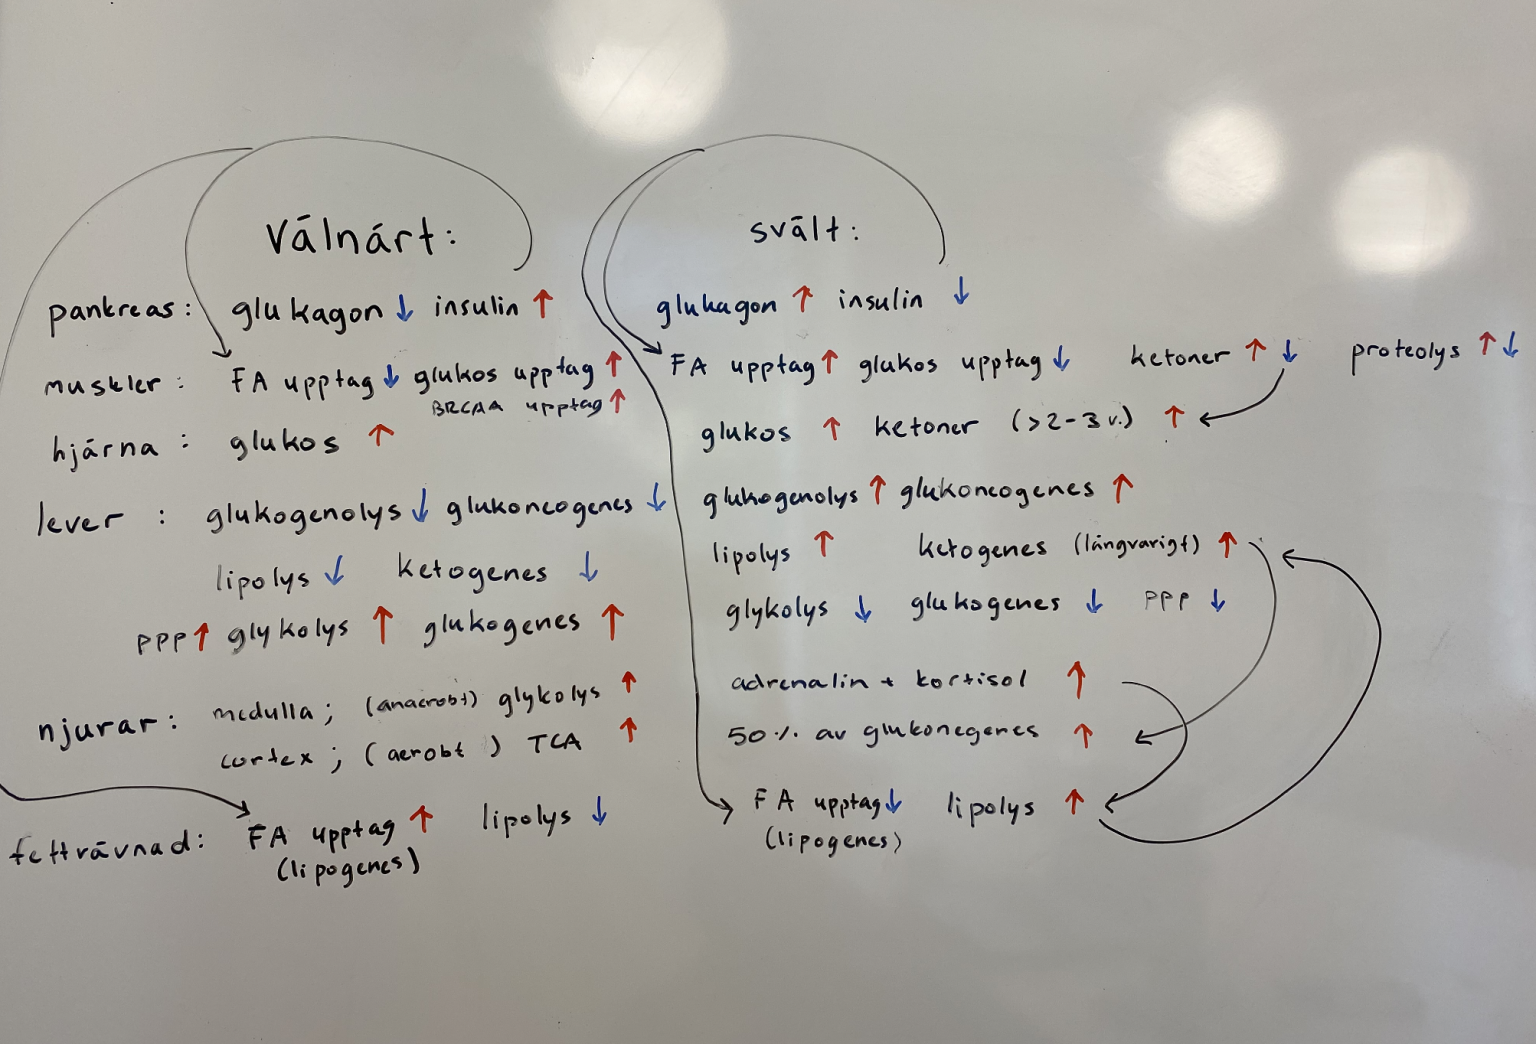 Välnärt:
pankreas: glukagon ↓ insulin ↑
muskler: FA upptag ↓ glukos upptag ↑
BRCAA upptag ↑
hjärna: glukos ↑
lever: glukogenolys ↓ glukoneogenes ↓
lipolys ↓ ketogenes ↓
PPP ↑ glykolys ↑ glukogenes ↑
njurar: medulla; (anaerobt) glykolys ↑
cortex; (aerobt) TCA ↑
fettvävnad: FA upptag ↑ lipolys ↓
(lipogenes)
svält:
glukagon ↑ insulin ↓
FA upptag ↑ glukos upptag ↓ ketoner ↑ ↓ proteolys ↑ ↓
glukos ↑ ketoner (>2-3 v.) ↑
glukogenolys ↑ glukoneogenes ↑
lipolys ↑ ketogenes (långvarigt) ↑
glykolys ↓ glukogenes ↓ PPP ↓
adrenalin + kortisol ↑
50 % av glukonegenes ↑
FA upptag ↓ lipolys ↑
(lipogenes)